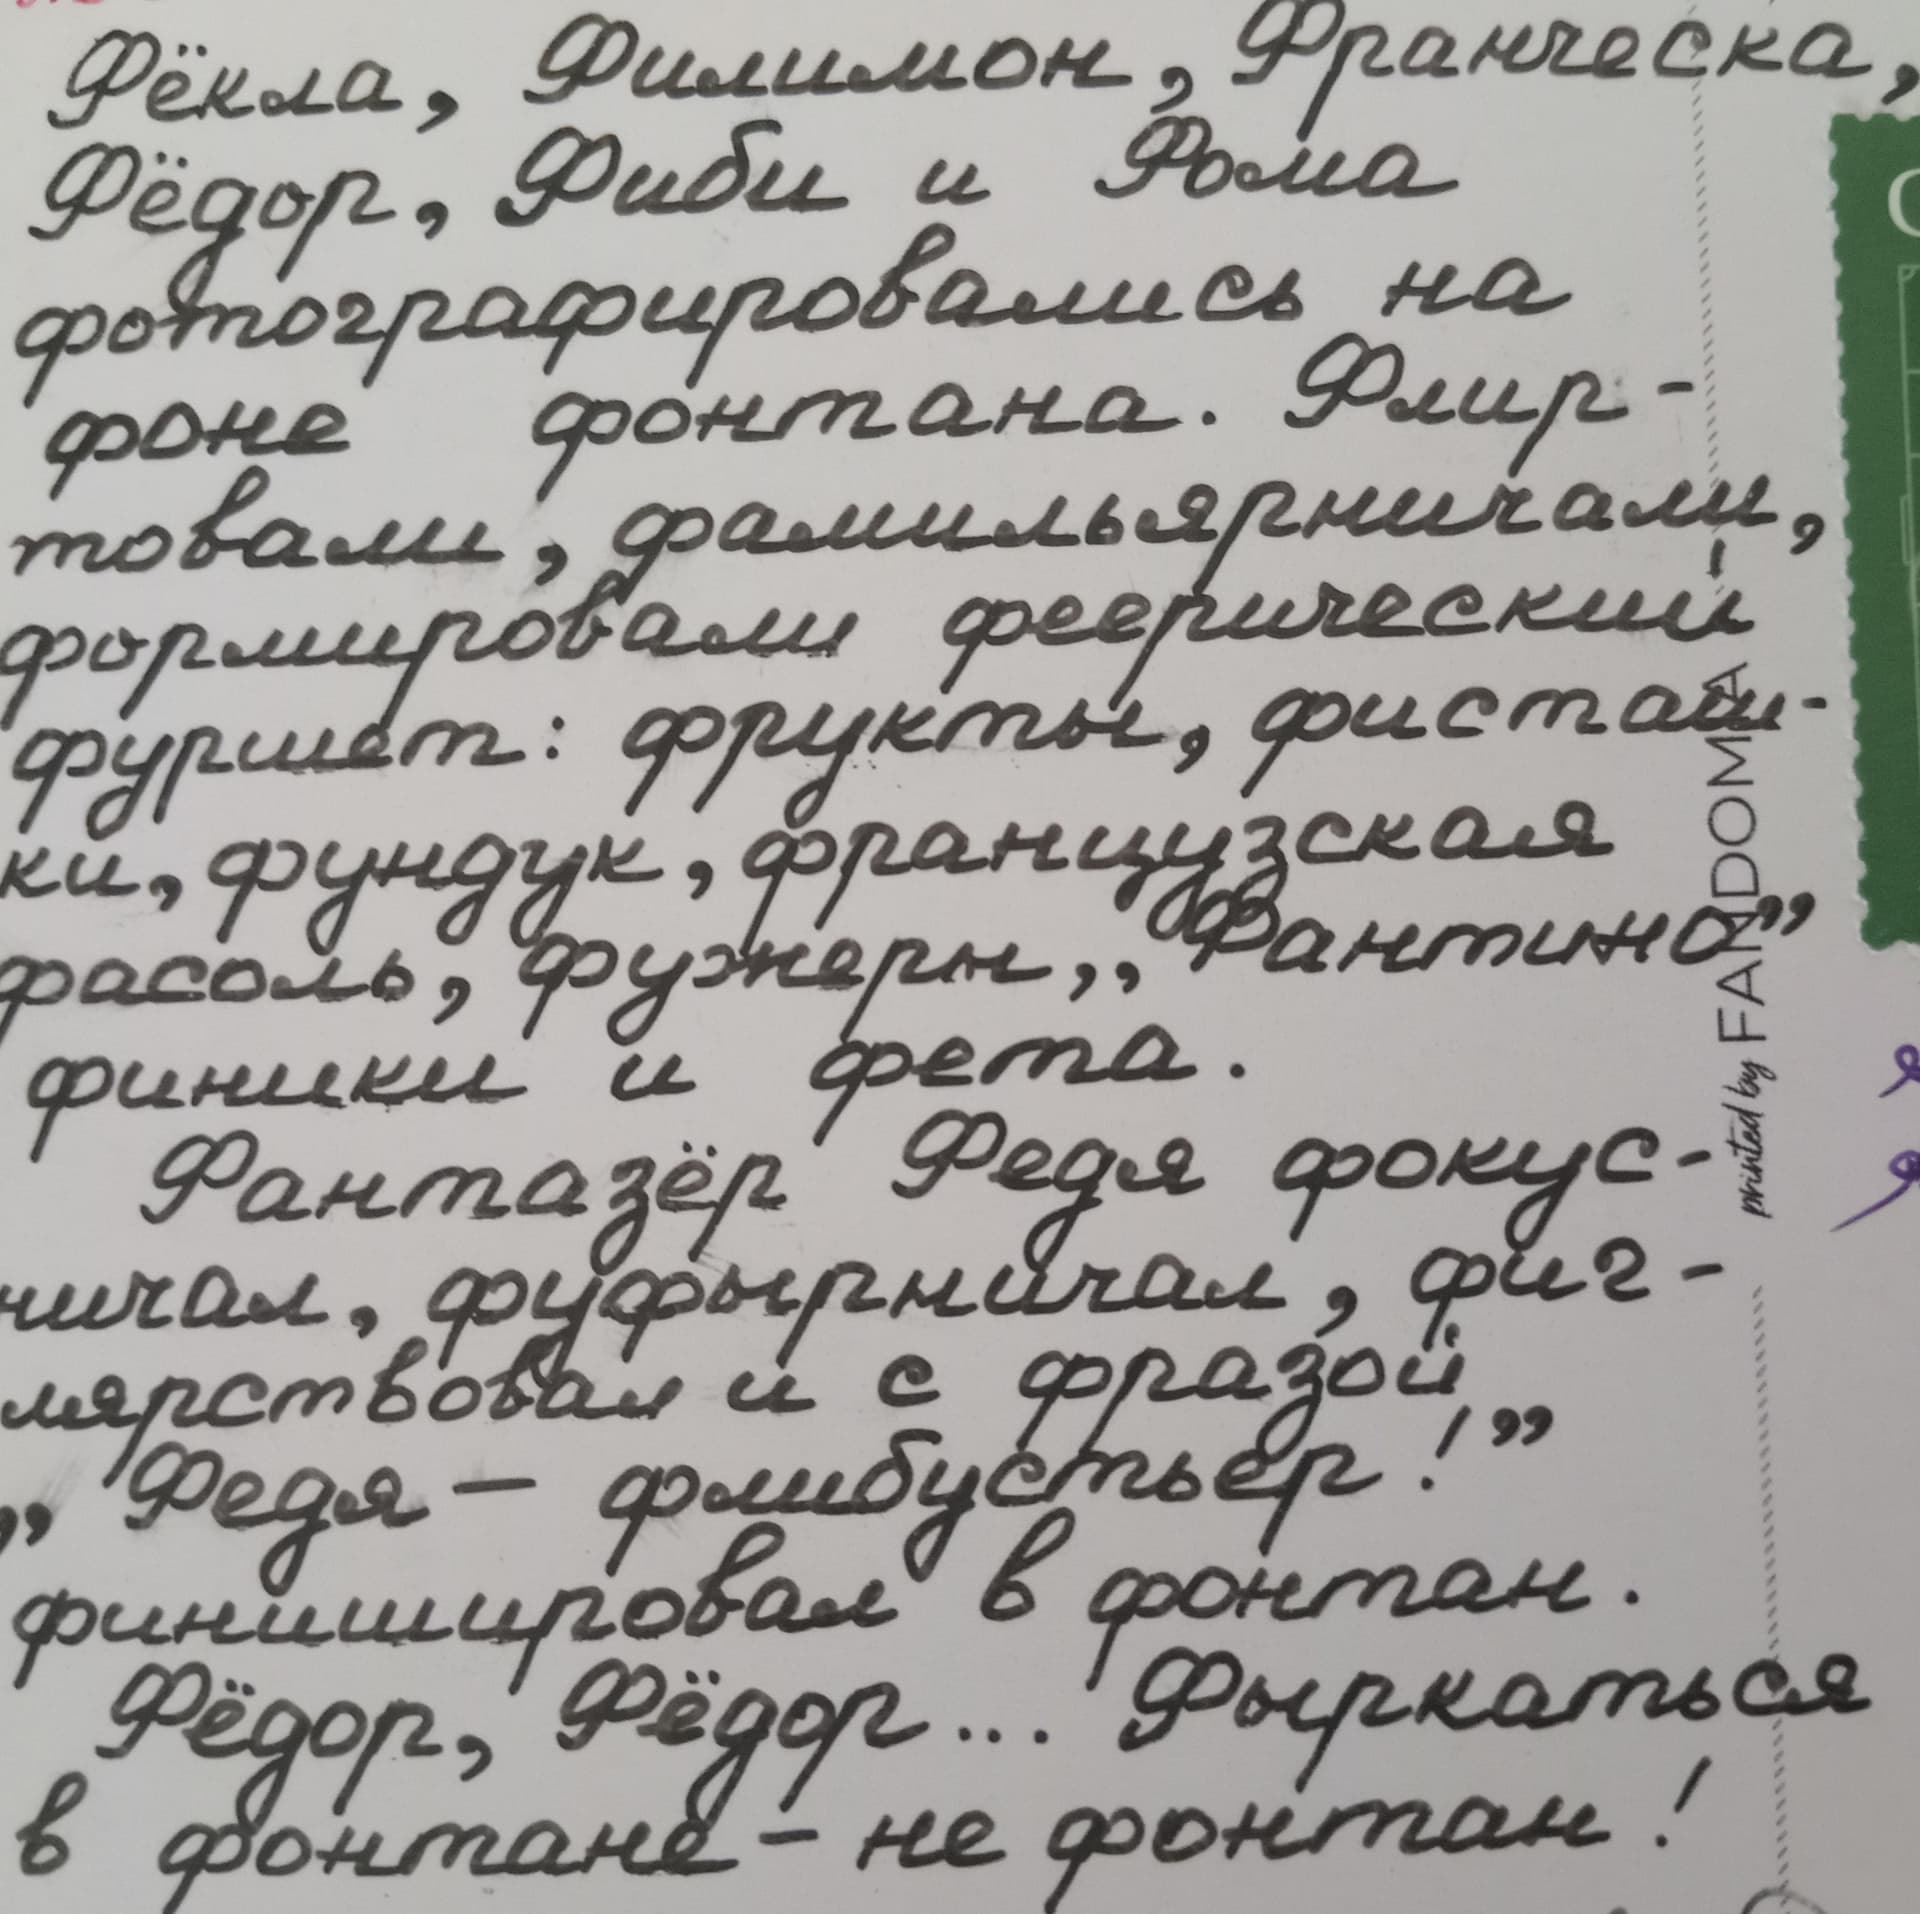 Фёкла, Филимон, Франческа,
Фёдор, Фиби и Фома
фотографировались на
фоне фонтана. Флир-
товали, фамильярничали,
формировали феерический
фуршет: фрукты, фисташ-
ки, фундук, французская
фасоль, фужеры „Фантина”
финики и фета.
Фантазёр Федя фокус-
ничал, фуфырничал, фиг-
лярствовал и с фразой
„Федя – флибустьер!”
финишировал в фонтан.
Фёдор, Фёдор... Фыркаться
в фонтане – не фонтан!
printed by FANDOMA